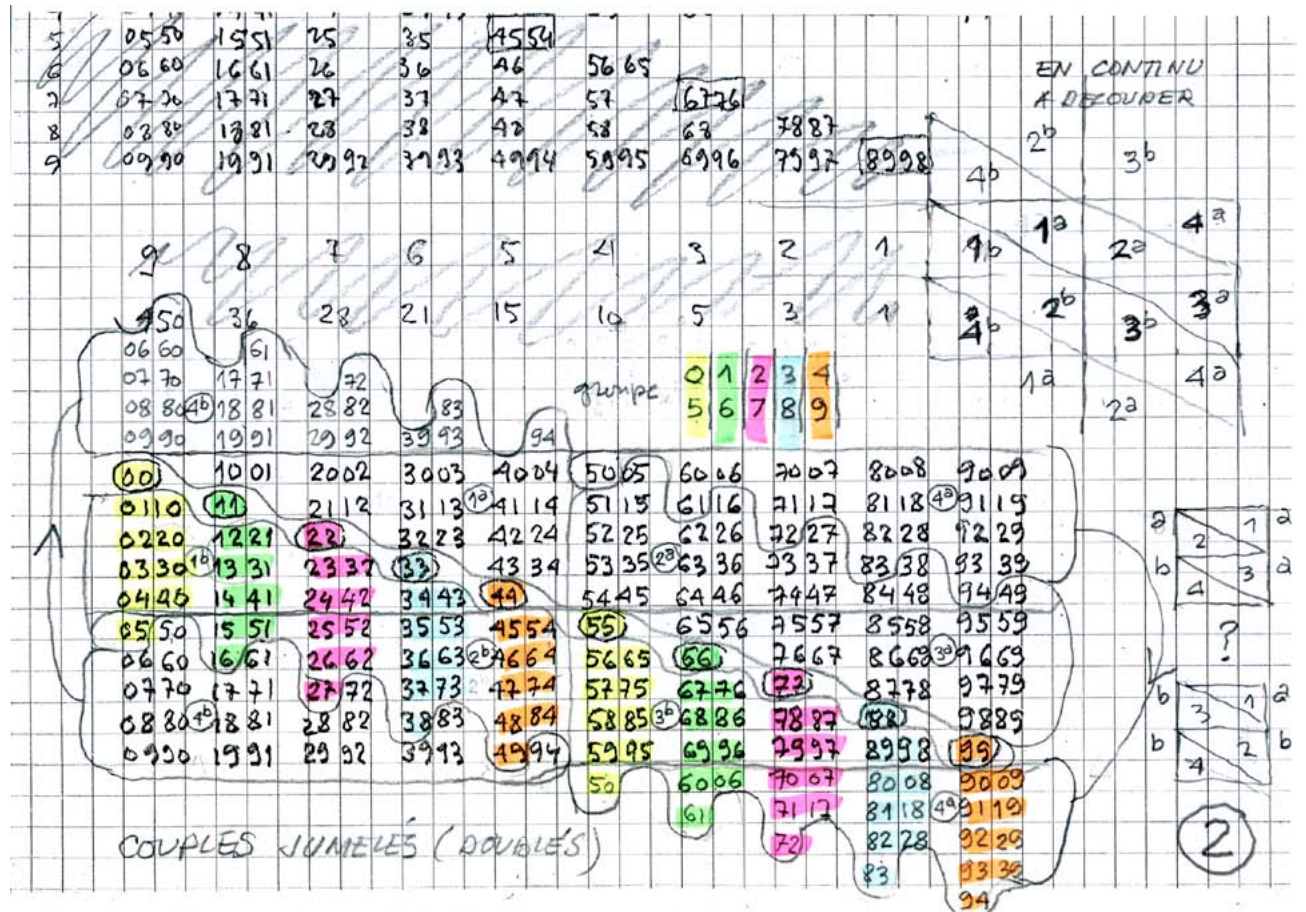 5 0550 1551 25 35 4554
6 0660 1661 26 36 46 5665
7 0770 1771 27 37 47 57 6776
8 0880 1881 28 38 48 58 68 7887
9 0990 1991 2992 3993 4994 5995 6996 7997 8998
EN CONTINU
A DECOUPER
2b
4b 3b
9 8 7 6 5 4 3 2 1
1b 1a 2a 4a
50 36 28 21 15 10 5 3 1
4b 2b 3b 3a
1a 2a 4a
0660 61
0770 1771 72
0880 4b 1881 2882 83
0990 1991 2992 3993 94
groupe 0 1 2 3 4
5 6 7 8 9
00 1001 2002 3003 4004 5005 6006 7007 8008 9009
0110 11 2112 3113 1a 4114 5115 6116 7117 8118 4a 9119
0220 1221 22 3223 4224 5225 6226 7227 8228 9229
0330 1b 1331 2332 33 4334 5335 2a 6336 7337 8338 9339
0440 1441 2442 3443 44 5445 6446 7447 8448 9449
0550 1551 2552 3553 4554 55 6556 7557 8558 9559
0660 1661 2662 3663 2b 4664 5665 66 7667 8668 3a 9669
0770 1771 2772 3773 4774 5775 6776 77 8778 9779
0880 4b 1881 2882 3883 4884 5885 3b 6886 7887 88 9889
0990 1991 2992 3993 4994 5995 6996 7997 8998 99
50 6006 7007 8008 9009
61 7117 8118 4a 9119
72 8228 9229
83 9339
94
a 2 1 a
b 4 3 a
?
b 3 1 a
b 4 2 b
COUPLES JUMELÉS (DOUBLÉS)
2